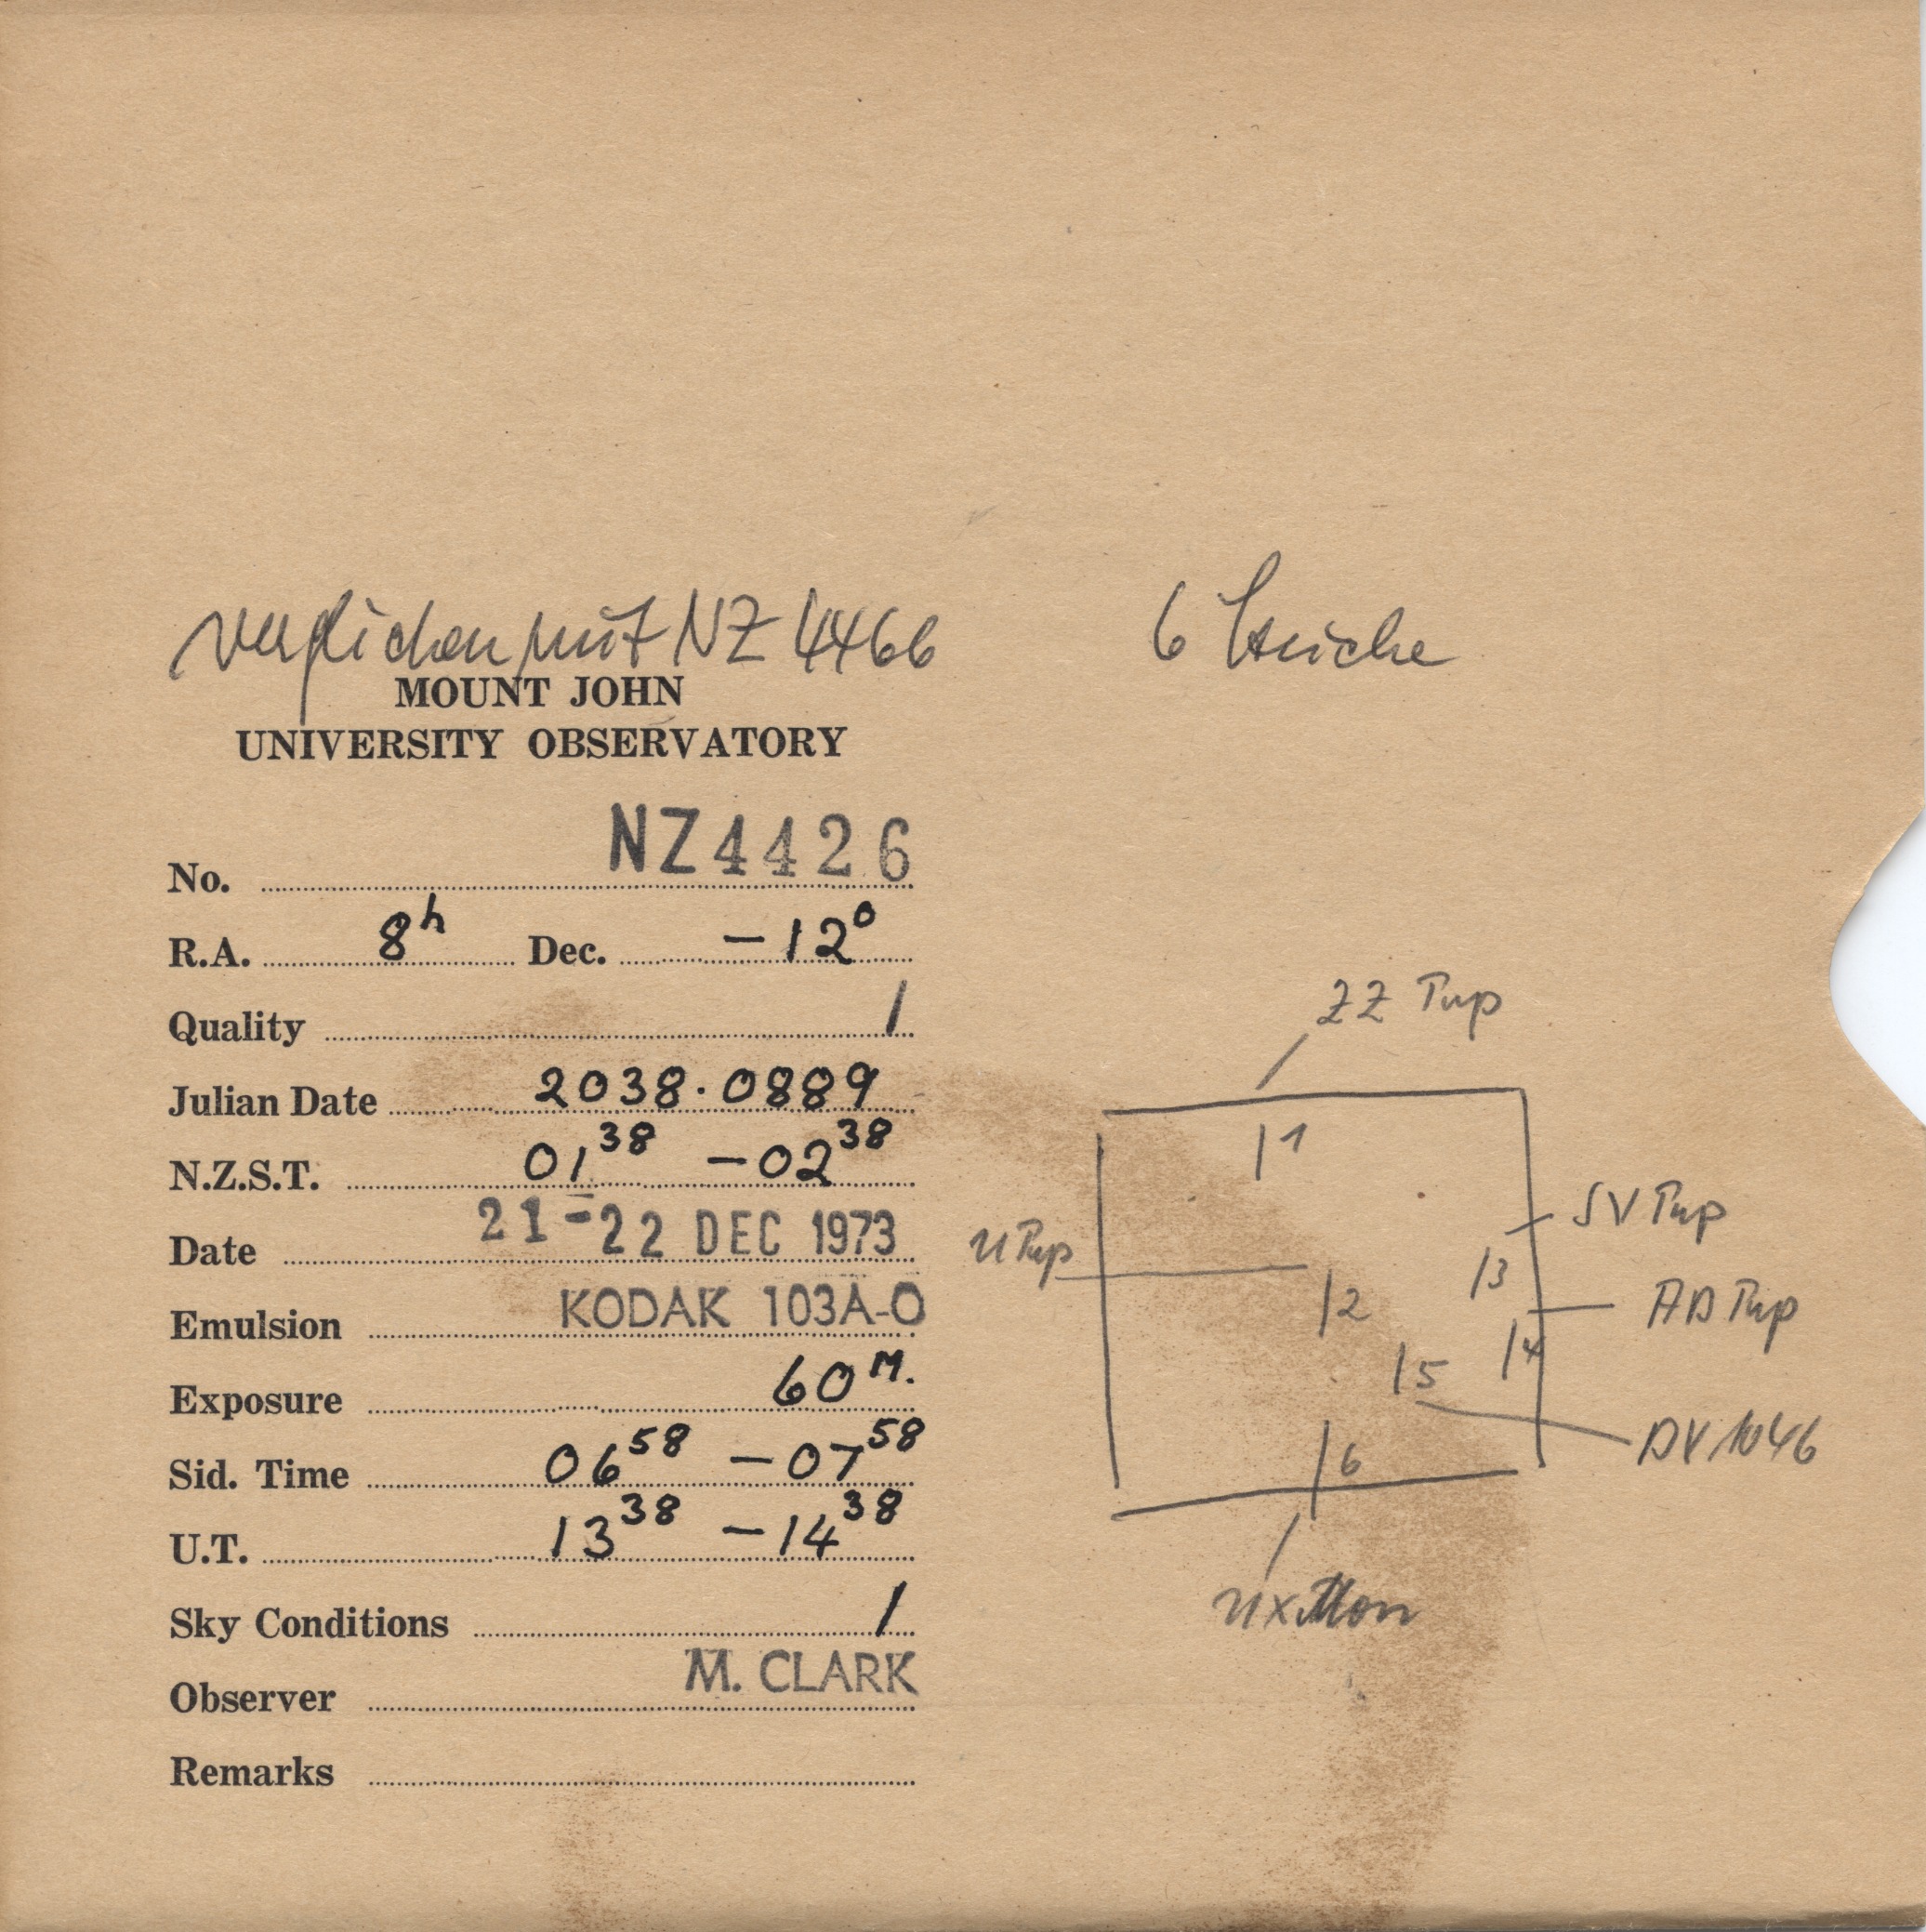 verglichen mit NZ 4466
6 Striche
MOUNT JOHN
UNIVERSITY OBSERVATORY
No. NZ4426
R.A. 8h Dec. -12°
Quality 1
Julian Date 2038.0889
N.Z.S.T. 01 38 - 02 38
Date 21-22 DEC 1973
Emulsion KODAK 103A-O
Exposure 60 M.
Sid. Time 06 58 - 07 58
U.T. 13 38 - 14 38
Sky Conditions 1
Observer M. CLARK
Remarks
ZZ Pup
1
SV Pup
U Pup
3
2
AD Pup
4
5
DV 1046
6
UX Mon